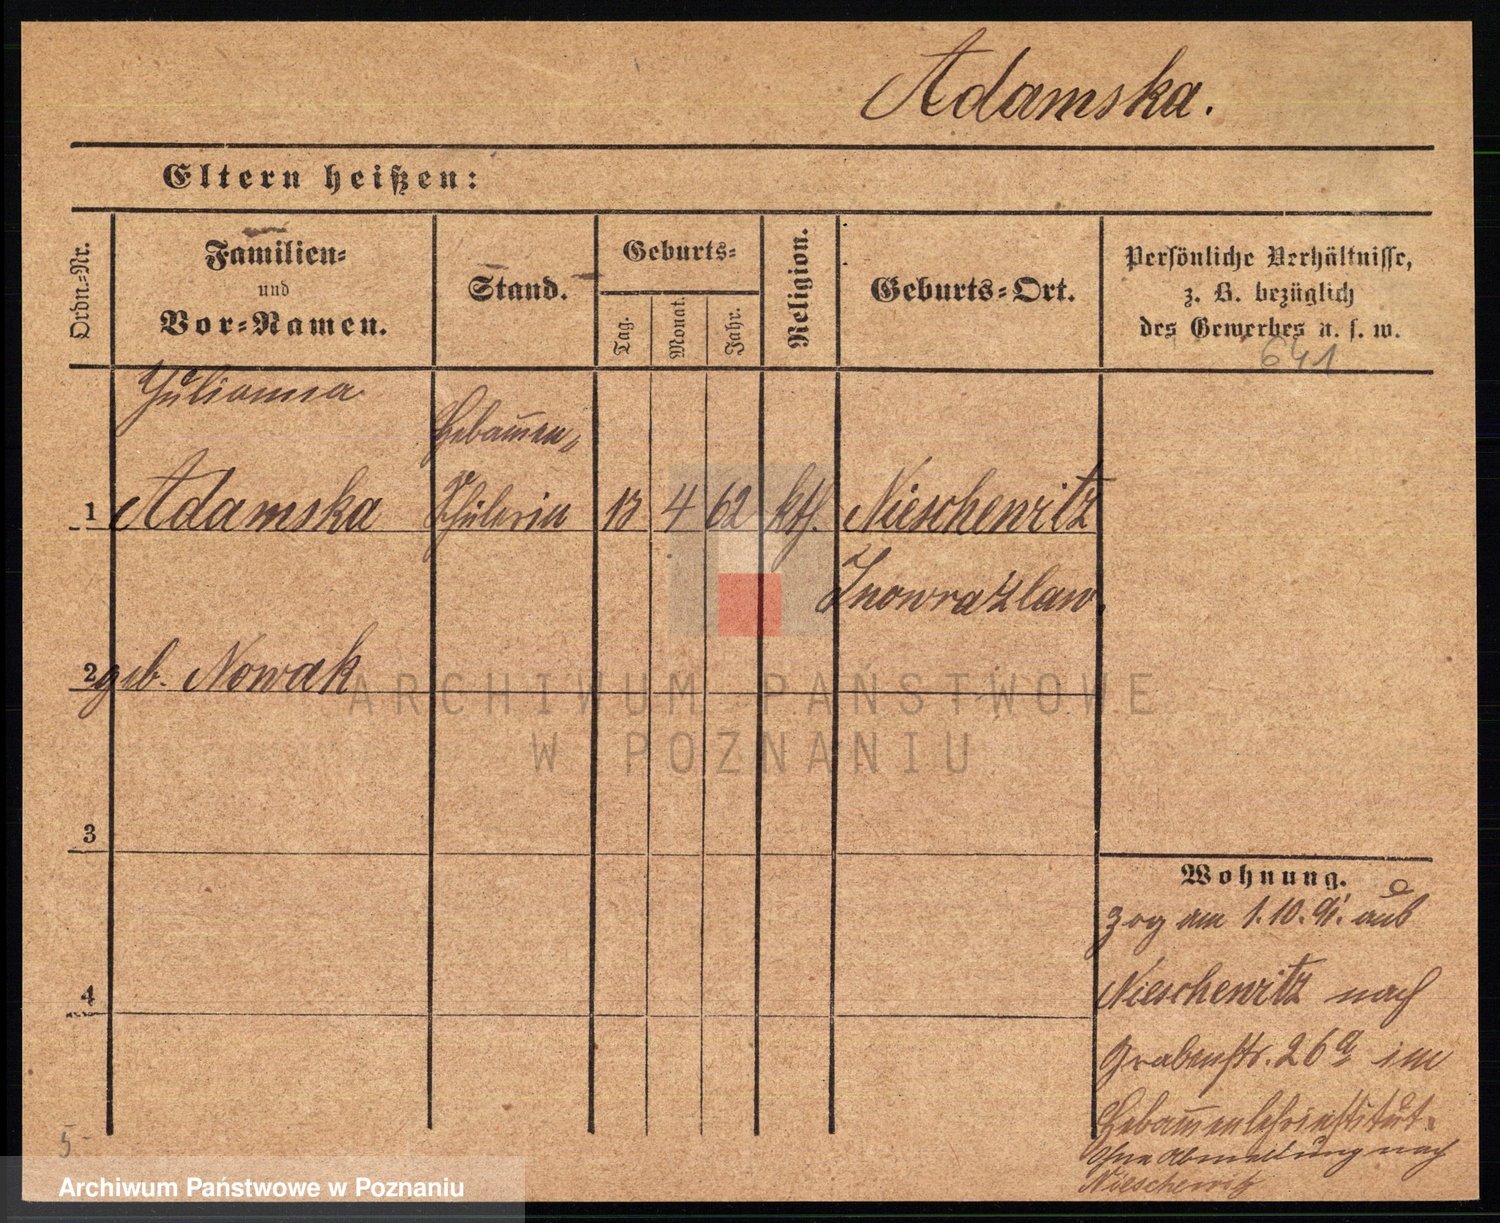 Adamska.
Eltern heißen:
Ordn.-Nr.
Familien-
und
Vor-Namen.
Stand.
Geburts-
Tag.
Monat.
Jahr.
Religion.
Geburts-Ort.
Persönliche Verhältnisse,
z. B. bezüglich
des Gewerbes u. s. w.
641
Julianna
Hebam̅en-
1 Adamska Schülerin 13 4 62 kth. Nieschewitz
Inowrazlaw.
2 geb. Nowak
3
4
Wohnung.
zog am 1.10.91. aus
Nieschewitz nach
Grabenstr. 26a im
Hebam̅enlehrinstitut.
Ohne Abmeldung nach
Nieschewitz
5-
ARCHIWUM PAŃSTWOWE
W POZNANIU
Archiwum Państwowe w Poznaniu